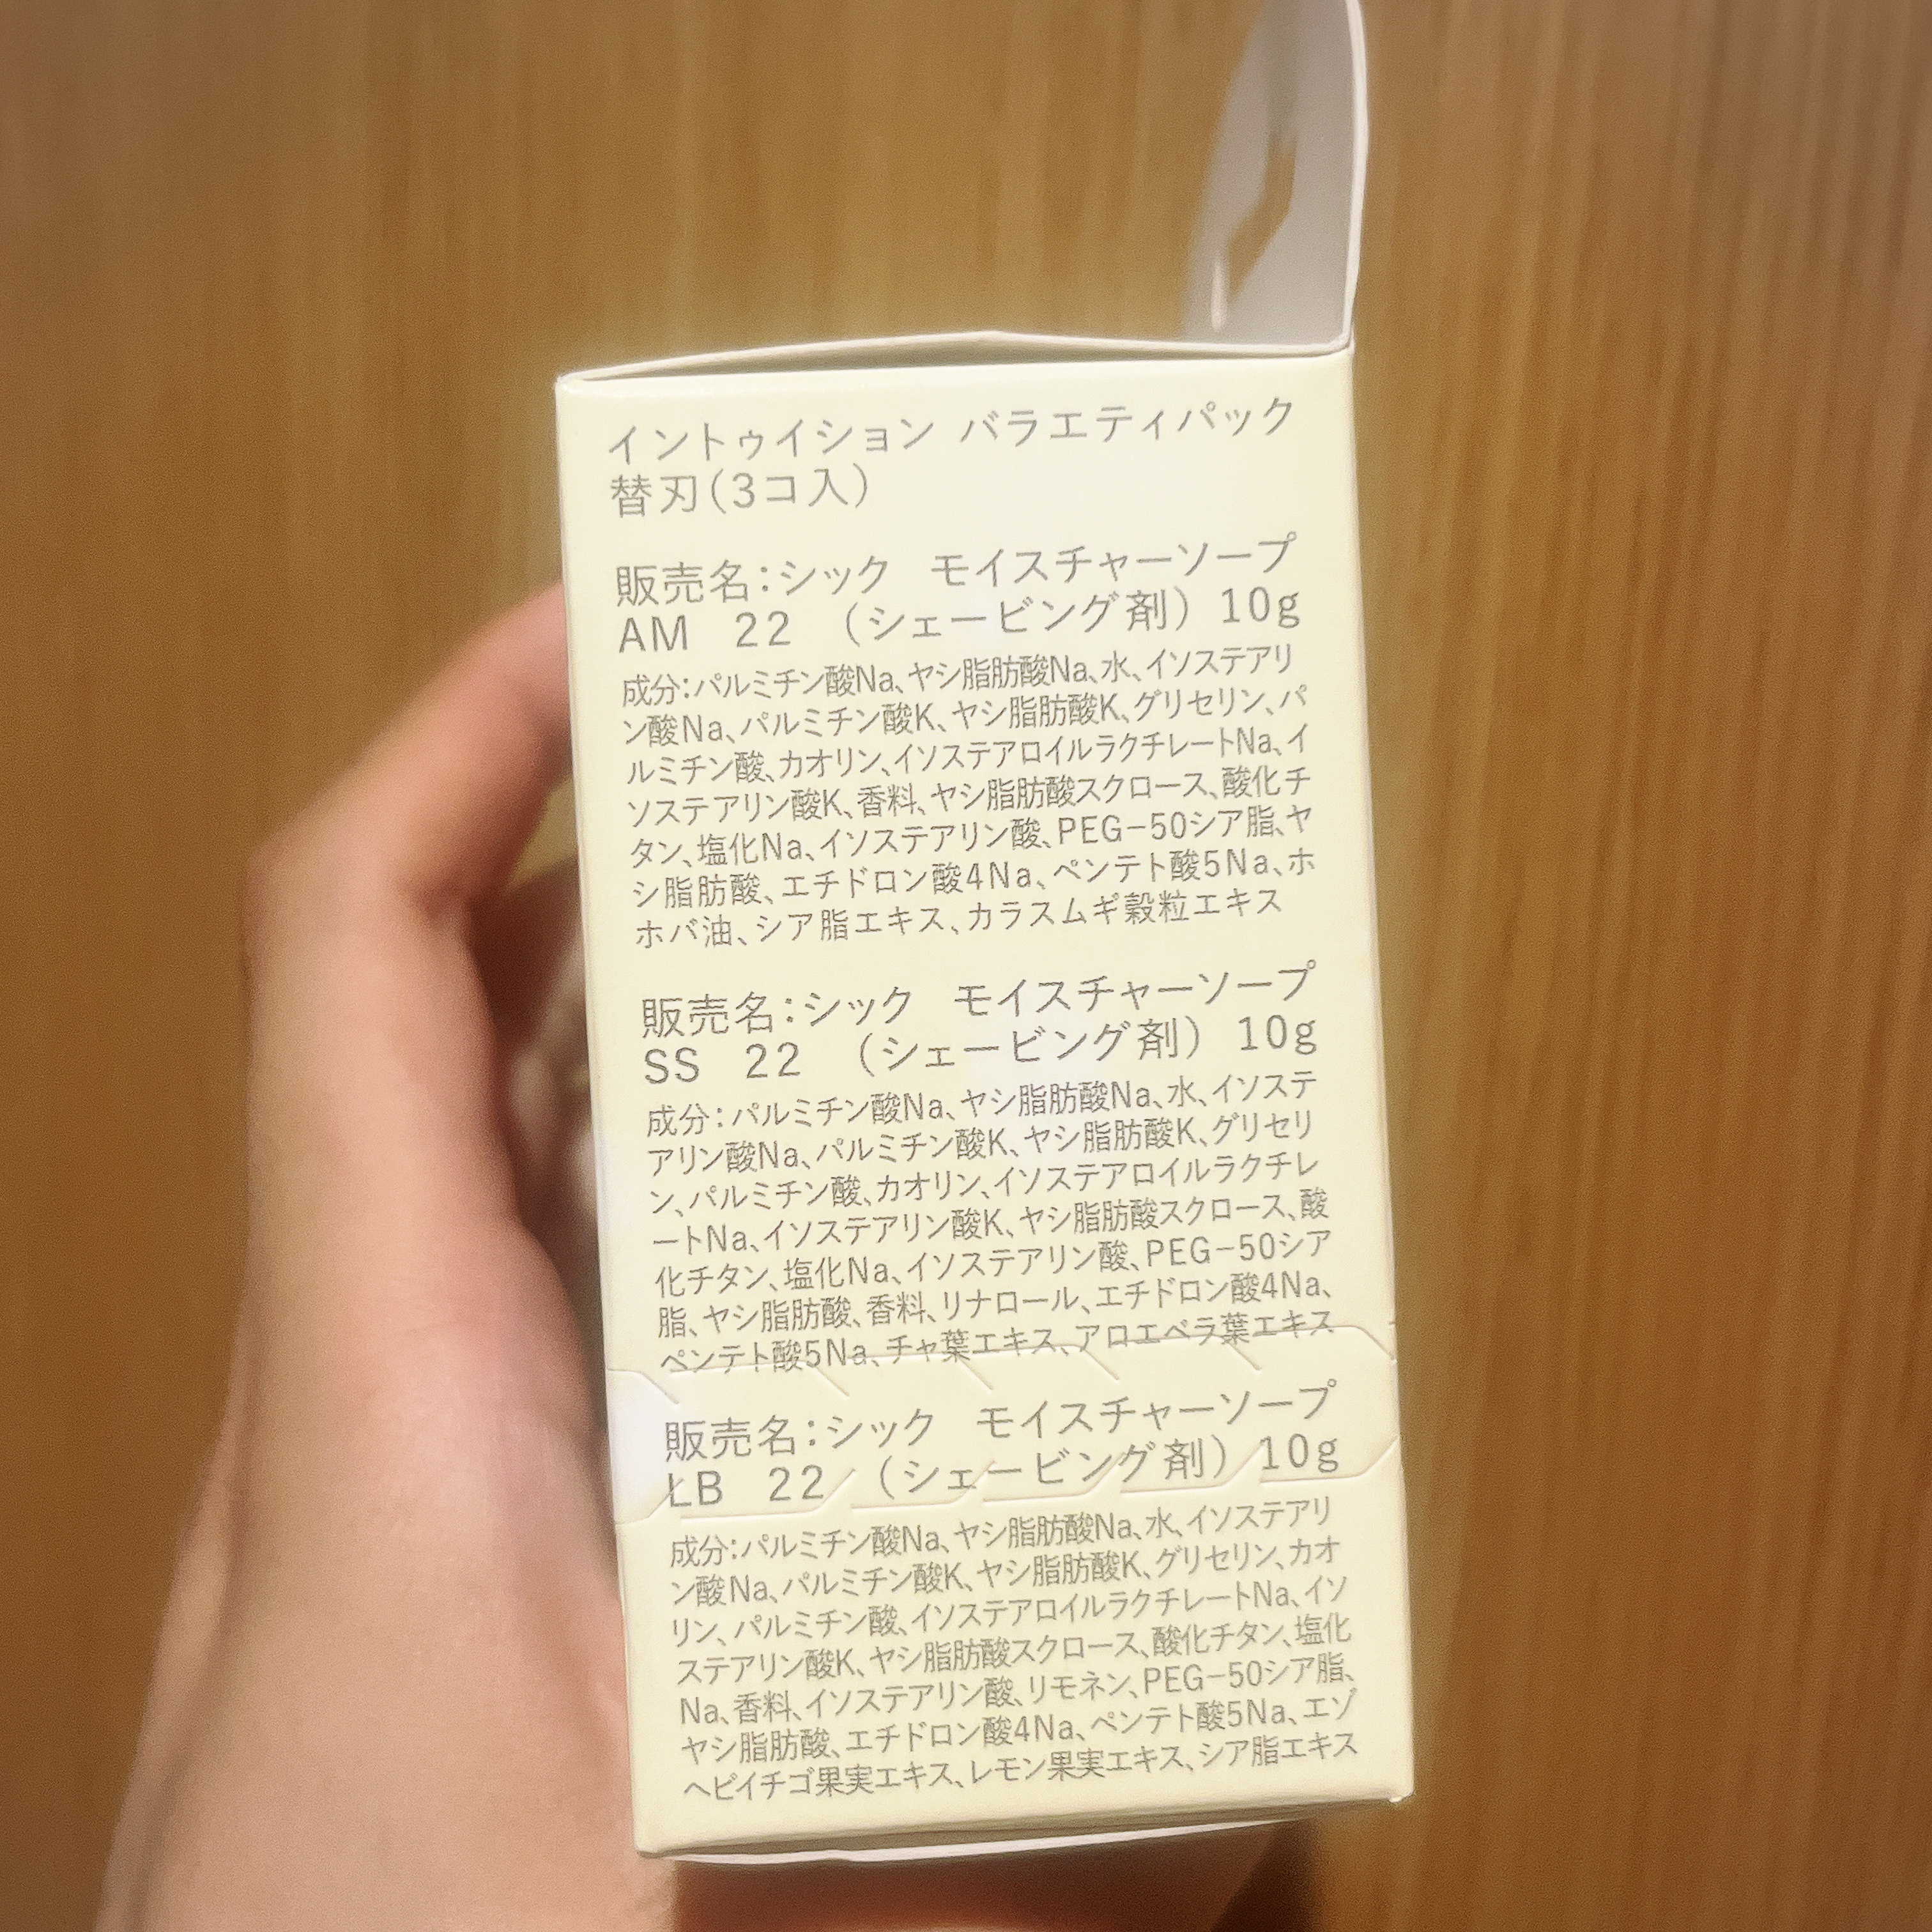 イントゥイション バラエティパック
替刃(3コ入)
販売名:シック モイスチャーソープ
AM 22 (シェービング剤) 10g
成分:パルミチン酸Na、ヤシ脂肪酸Na、水、イソステアリ
ン酸Na、パルミチン酸K、ヤシ脂肪酸K、グリセリン、パ
ルミチン酸、カオリン、イソステアロイルラクチレートNa、イ
ソステアリン酸K、香料、ヤシ脂肪酸スクロース、酸化チ
タン、塩化Na、イソステアリン酸、PEG-50シア脂、ヤ
シ脂肪酸、エチドロン酸4Na、ペンテト酸5Na、ホ
ホバ油、シア脂エキス、カラスムギ穀粒エキス
販売名:シック モイスチャーソープ
SS 22 (シェービング剤) 10g
成分:パルミチン酸Na、ヤシ脂肪酸Na、水、イソステ
アリン酸Na、パルミチン酸K、ヤシ脂肪酸K、グリセリ
ン、パルミチン酸、カオリン、イソステアロイルラクチレ
ートNa、イソステアリン酸K、ヤシ脂肪酸スクロース、酸
化チタン、塩化Na、イソステアリン酸、PEG-50シア
脂、ヤシ脂肪酸、香料、リナロール、エチドロン酸4Na、
ペンテト酸5Na、チャ葉エキス、アロエベラ葉エキス
販売名:シック モイスチャーソープ
LB 22 (シェービング剤) 10g
成分:パルミチン酸Na、ヤシ脂肪酸Na、水、イソステアリ
ン酸Na、パルミチン酸K、ヤシ脂肪酸K、グリセリン、カオ
リン、パルミチン酸、イソステアロイルラクチレートNa、イソ
ステアリン酸K、ヤシ脂肪酸スクロース、酸化チタン、塩化
Na、香料、イソステアリン酸、リモネン、PEG-50シア脂、
ヤシ脂肪酸、エチドロン酸4Na、ペンテト酸5Na、エゾ
ヘビイチゴ果実エキス、レモン果実エキス、シア脂エキス